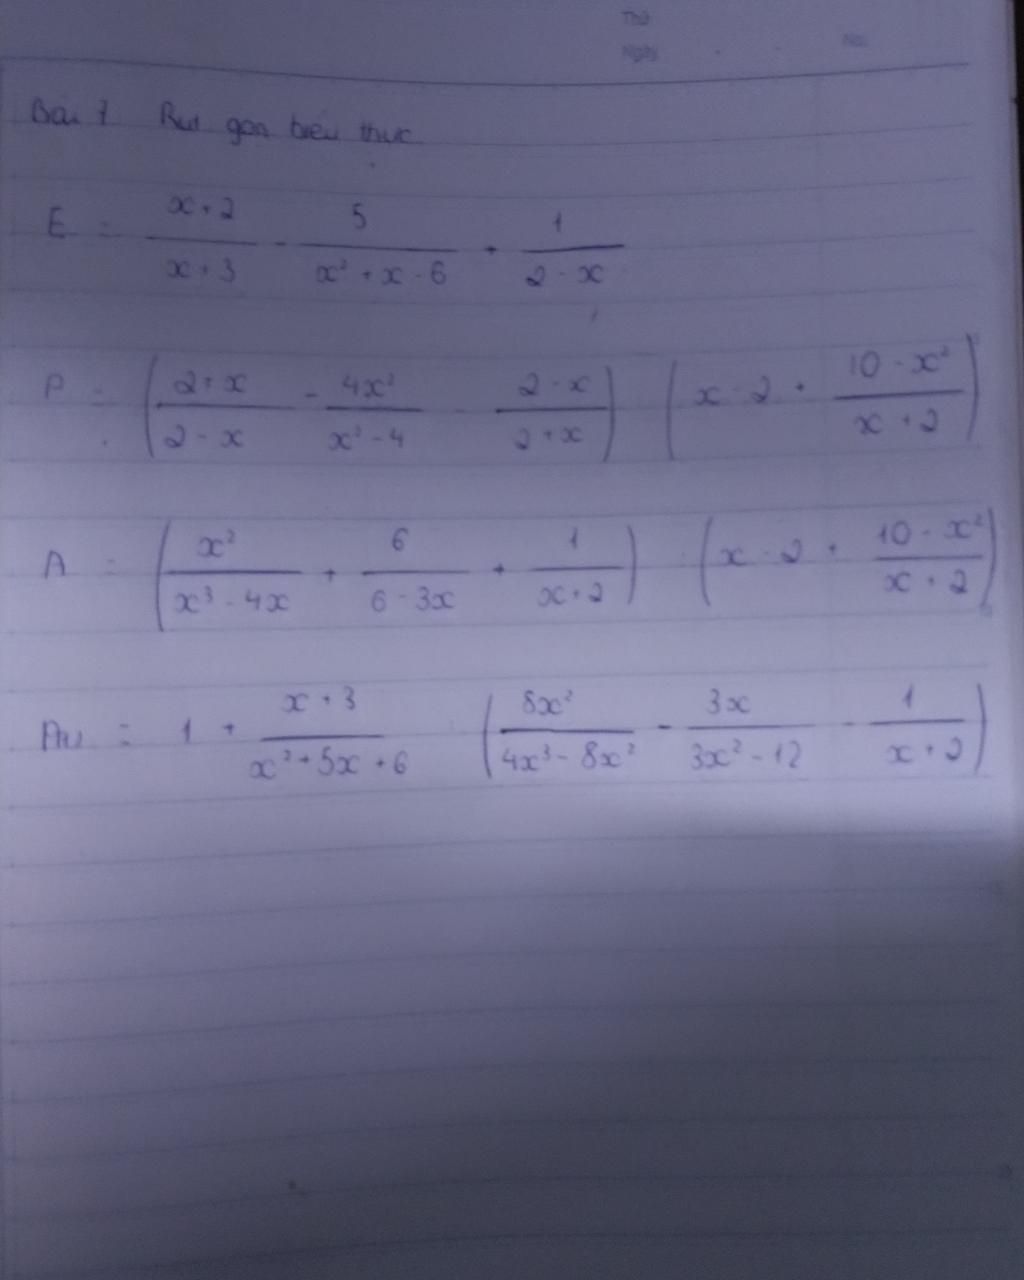 Thứ
Ngày . . No.
Bài 1 Rut gon bieu thuc
E = \frac{x+2}{x+3} - \frac{5}{x²+x-6} + \frac{1}{2-x}
P = (\frac{2+x}{2-x} - \frac{4x²}{x²-4} - \frac{2-x}{2+x}) (x-2+\frac{10-x²}{x+2})
A = (\frac{x²}{x³-4x} + \frac{6}{6-3x} + \frac{1}{x+2}) : (x-2+\frac{10-x²}{x+2})
= 1 + \frac{x+3}{x²+5x+6} : (\frac{8x²}{4x³-8x²} - \frac{3x}{3x²-12} - \frac{1}{x+2})